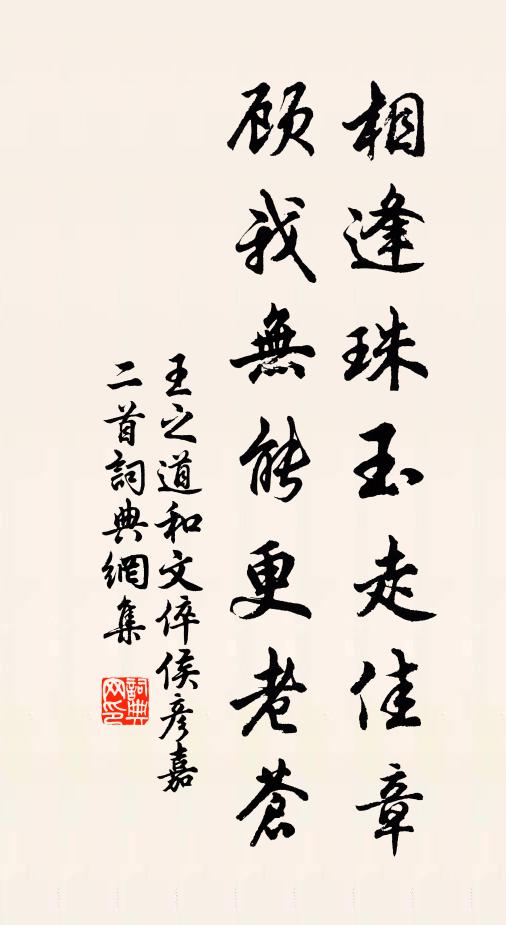 相逢珠玉走佳章
顾我無能更老蒼
王之道和文倅侯彦嘉
二首詞典網集
詞典
网印